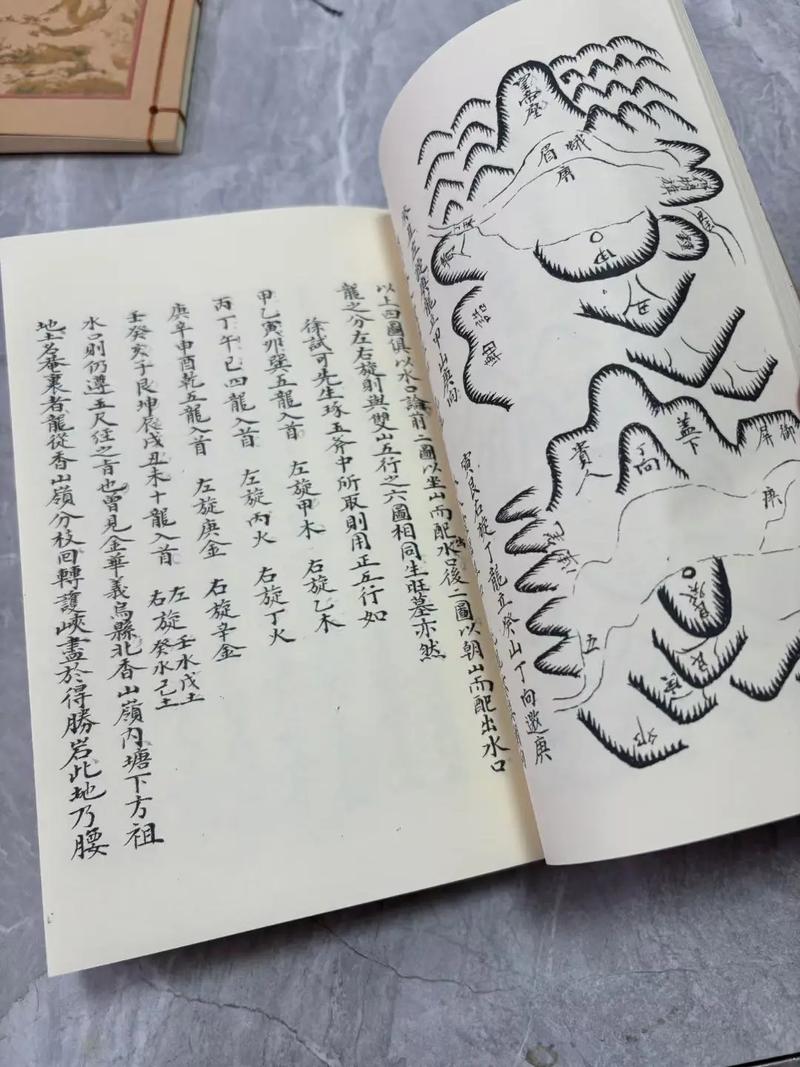 以上四圖俱以水口論前二圖以坐山而配水口後二圖以朝山而配出水口
龍之分左右旋則與雙山五行之六圖相同生旺墓亦然
徐試可先生琢玉斧中所取則用正五行如
甲乙寅卯巽五龍入首 左旋甲木 右旋乙木
丙丁午巳四龍入首 左旋丙火 右旋丁火
庚辛申酉乾五龍入首 左旋庚金 右旋辛金
壬癸亥子艮坤辰戌丑未十龍入首 左旋壬水戊土 右旋癸水己土
水口則仍遵玉尺經之旨也曾見金華義烏縣北香山嶺內塘下方祖
地土名菴裏者龍從香山嶺分枝回轉護峽盡於得勝岩此地乃腰
蛾眉
庚
甲山庚向
貴人
蓋下
御屏
庚
寅艮右旋丁龍立癸山丁向邀庚